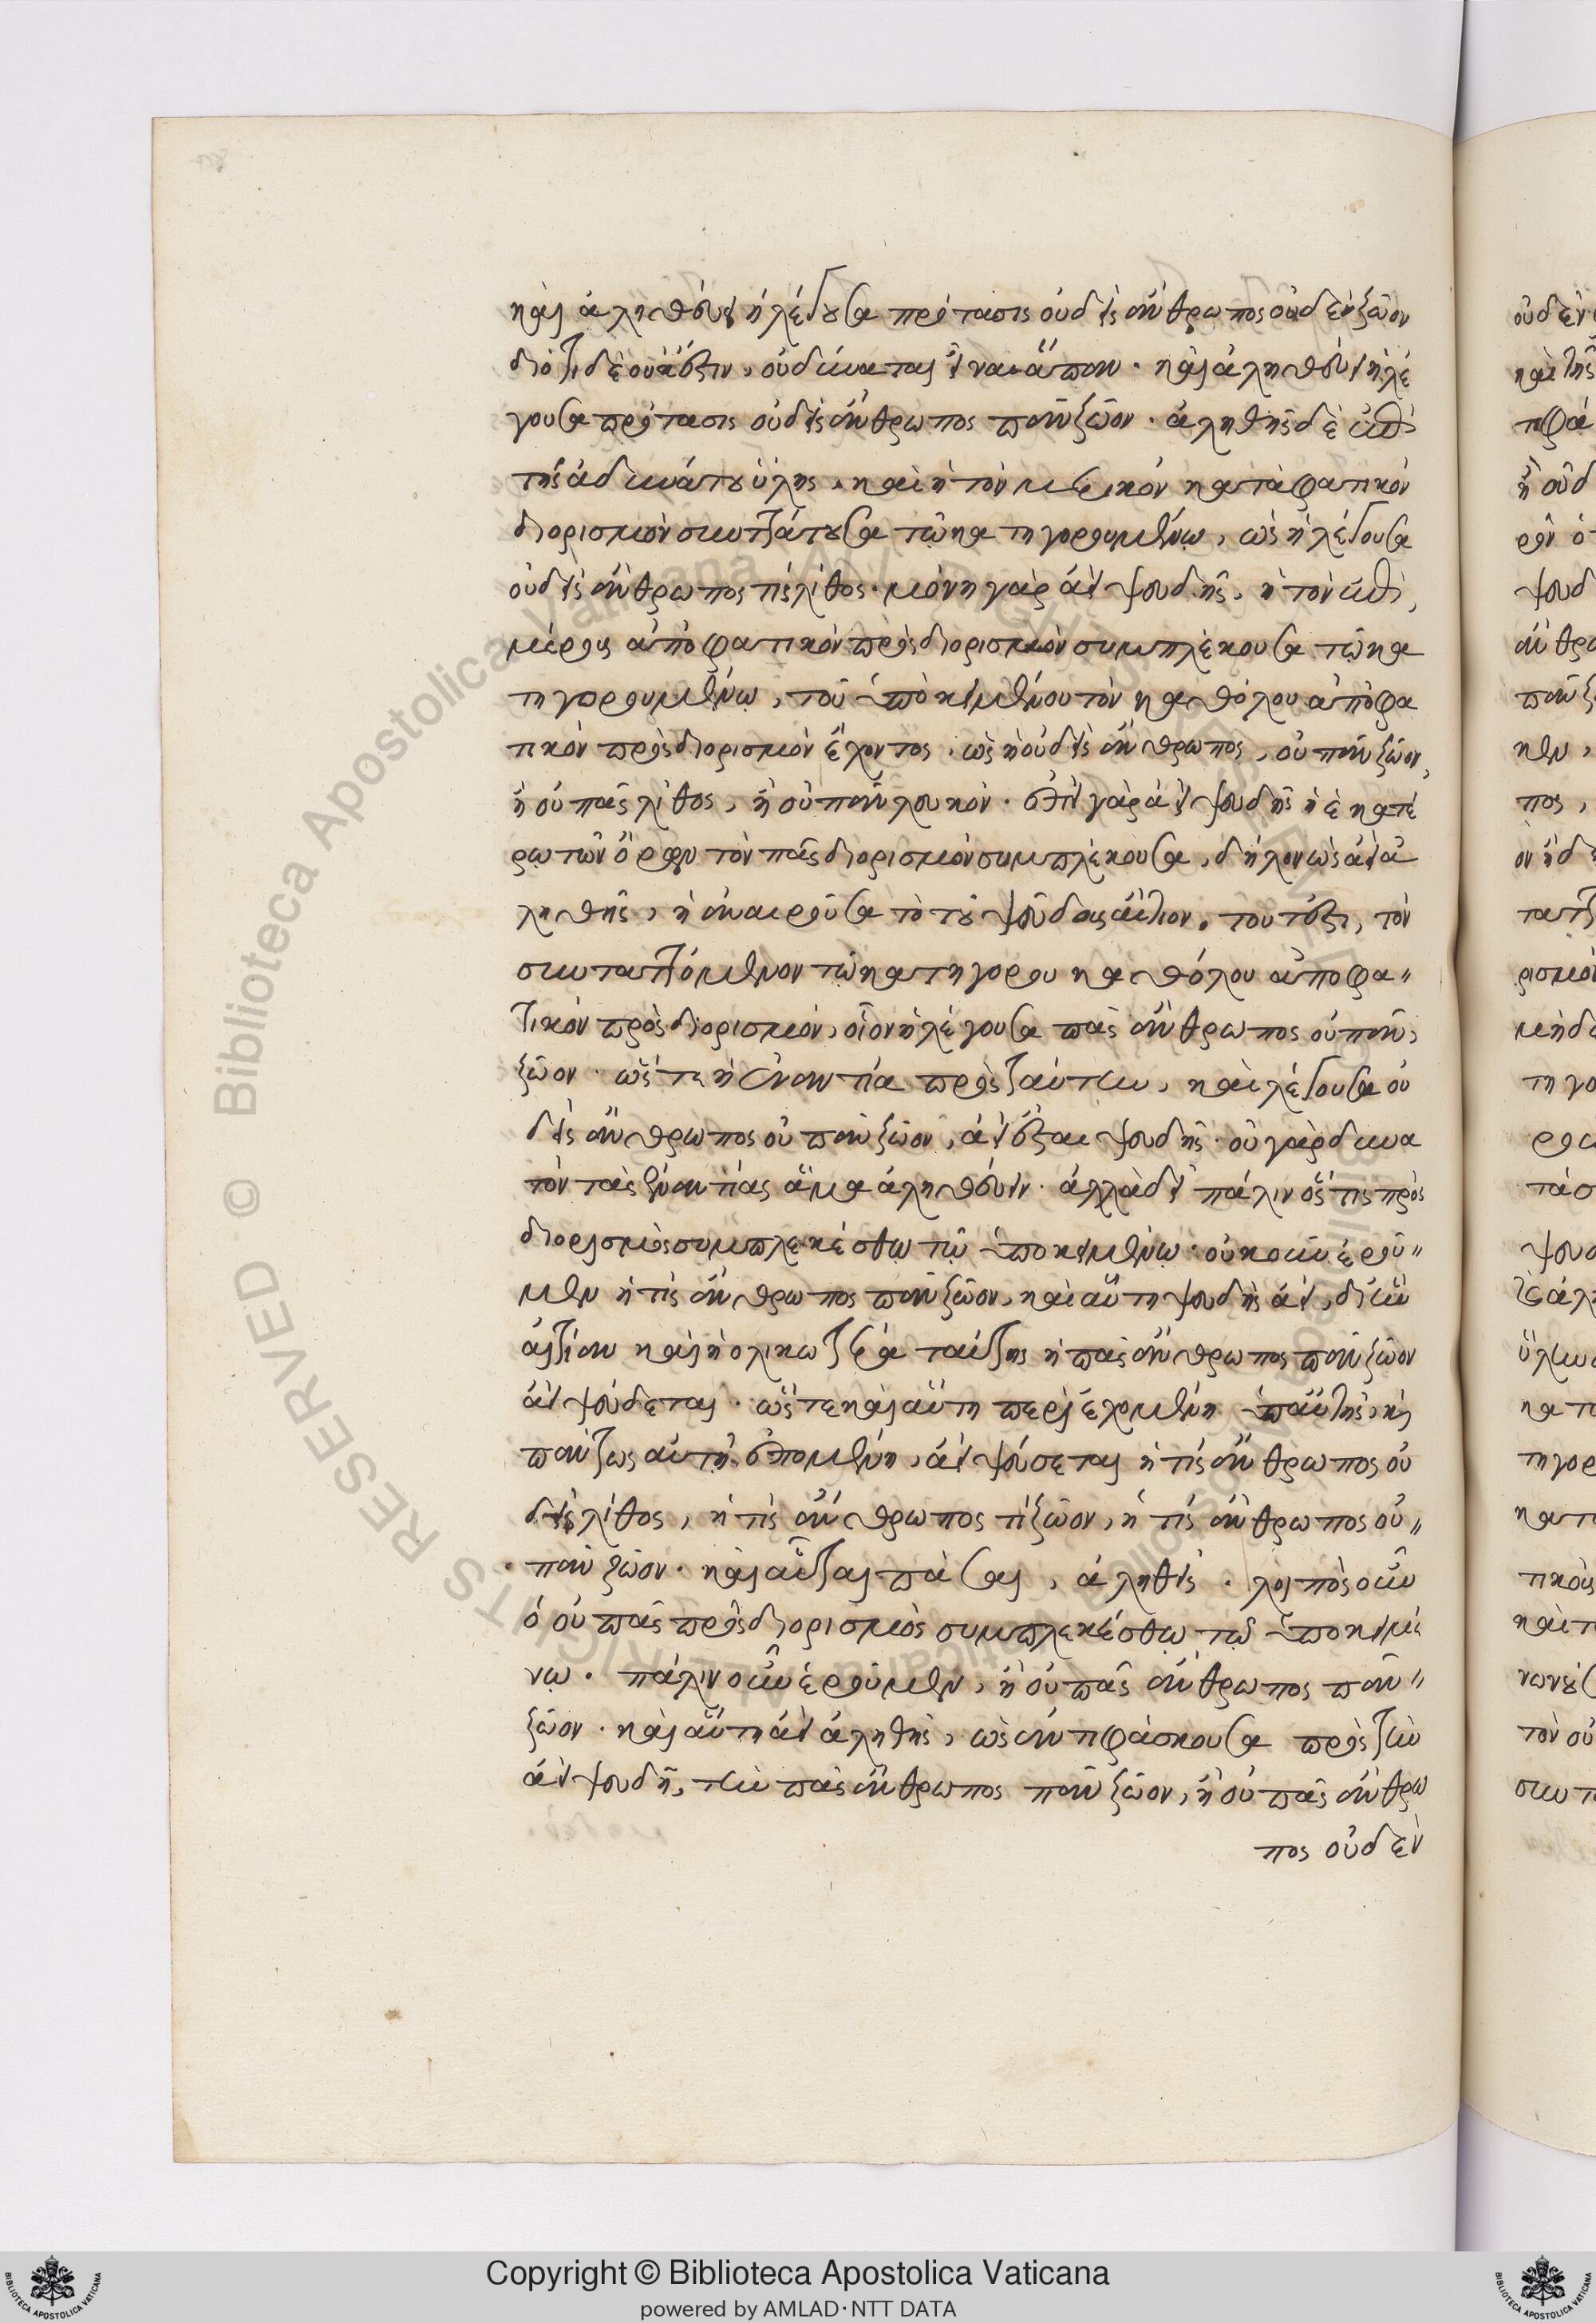 καὶ ἀληθεύει ἡ λέγουσα πρότασις οὐδεὶς ἄνθρωπος οὐδὲν ζῶον
διότι δὲ οὐά ἐστιν, οὐ δύναται εἶναι ἅπαν. καὶ ἀληθεύει ἡ λέ
γουσα πρότασις οὐδεὶς ἄνθρωπος πᾶν ζῶον. ἀληθὴς δὲ ἐπὶ
τῆς ἀδυνάτου ὕλης, καὶ ἡ τὸν μερικὸν καταφατικὸν
διορισμὸν συντάττουσα τῷ κατηγορουμένῳ, ὡς ἡ λέγουσα
οὐδεὶς ἄνθρωπος τὶς λίθος. μόνη γὰρ ἀεὶ ψευδὴς, ἡ τὸν ἐπὶ
μέρους ἀποφατικὸν προσδιορισμὸν συμπλέκουσα τῷ κα
τηγορουμένῳ, τοῦ ὑποκειμένου τὸν καθόλου ἀποφα
τικὸν προσδιορισμὸν ἔχοντος, ὡς ἡ οὐδεὶς ἄνθρωπος, οὐ πᾶν ζῶον,
ἢ οὐ πᾶς λίθος, ἢ οὐ πᾶν λευκόν. ἐπεὶ γὰρ ἀεὶ ψευδὴς ἡ ἑκατέ
ρῳ τῶν ὅρων τὸν πᾶς διορισμὸν συμπλέκουσα, δῆλον ὡς ἀεὶ ἀ
ληθὴς, ἡ ἀναιροῦσα τὸ τοῦ ψεύδους αἴτιον. τουτέστι, τὸν
συνταττόμενον τῷ κατηγορου καθόλου ἀποφα〃
τικὸν προσδιορισμὸν, οἷον ἡ λέγουσα πᾶς ἄνθρωπος οὐ πᾶν,
ζῶον. ὥστε ἡ ἐναντία πρὸς ταύτην, καὶ λέγουσα οὐ
δεὶς ἄνθρωπος οὐ πᾶν ζῶον, ἀεὶ ἔσται ψευδής. οὐ γὰρ δυνα
τὸν τὰς ἐναντίας ἅμα ἀληθεύειν. ἀλλὰ δεῖ πάλιν ὅς τις προς
διορισμὸς συμπλεκέσθω τῷ ὑποκειμένῳ. οὐκοῦν ἐροῦ〃
μεν ἡ τὶς ἄνθρωπος πᾶν ζῶον, καὶ αὕτη ψευδὴς ἀεὶ, δι' ἣν
αἰτίαν καὶ ἡ ολικωτέρα ταύτης ἡ πᾶς ἄνθρωπος πᾶν ζῶον
ἀεὶ ψεύδεται. ὥστε καὶ αὕτη περιεχομένη ὑπ' αὐτῆς, κỳ
πάντως αὐτῇ ἑπομένη, ἀεὶ ψεύσεται ἡ τὶς ἄνθρωπος οὐ
δεὶς λίθος, ἡ τὶς ἄνθρωπος τὶ ζῶον, ἡ τὶς ἄνθρωπος οὐ〃
πᾶν ζῶον. καὶ αὗται πᾶσαι, ἀληθεῖς. λοιπὸς οὖν
ὁ οὐ πᾶς προσδιορισμὸς συμπλεκέσθω τῷ ὑποκειμέ
νῳ. πάλιν οὖν ἐροῦμεν, ἡ οὐ πᾶς ἄνθρωπος πᾶν〃
ζῶον. καὶ αὕτη ἀεὶ ἀληθὴς, ὡς ἀντιφάσκουσα πρὸς τὴν
ἀεὶ ψευδῆ, τὴν πᾶς ἄνθρωπος πᾶν ζῶον, ἡ οὐ πᾶς ἄνθρω
πος οὐδὲν